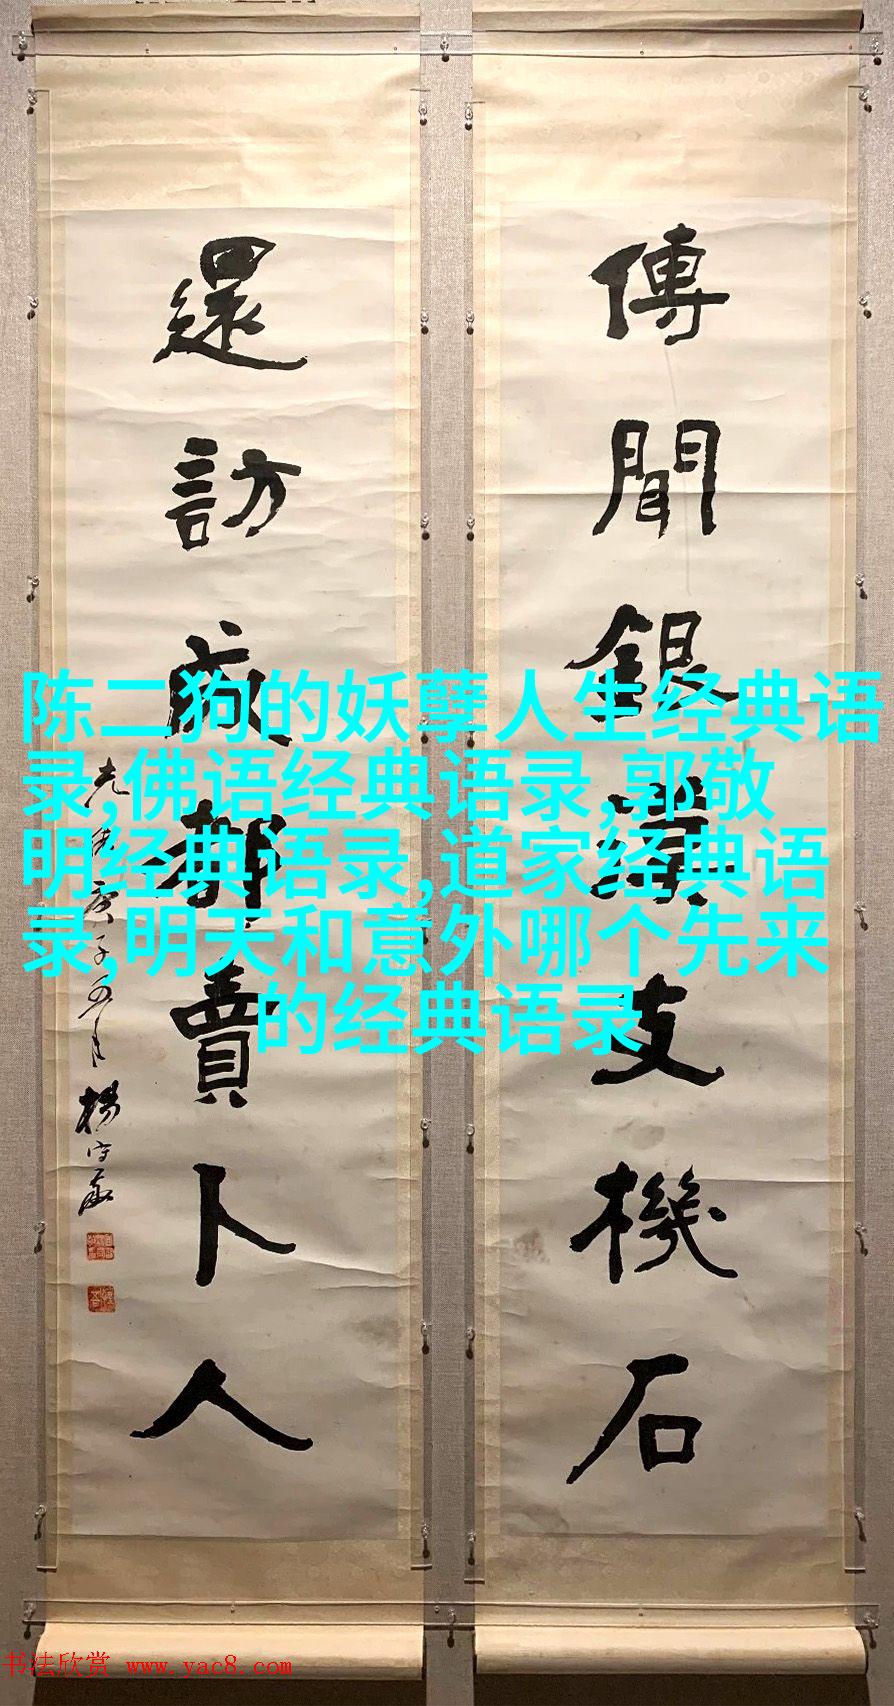 傳聞銀漢支機石
還訪成都賣卜人
光緒庚子五月 楊守敬
陈二狗的妖孽人生经典语
录,佛语经典语录,郭敬
明经典语录,道家经典语
录,明天和意外哪个先来
的经典语录
书法欣赏 www.yac8.com